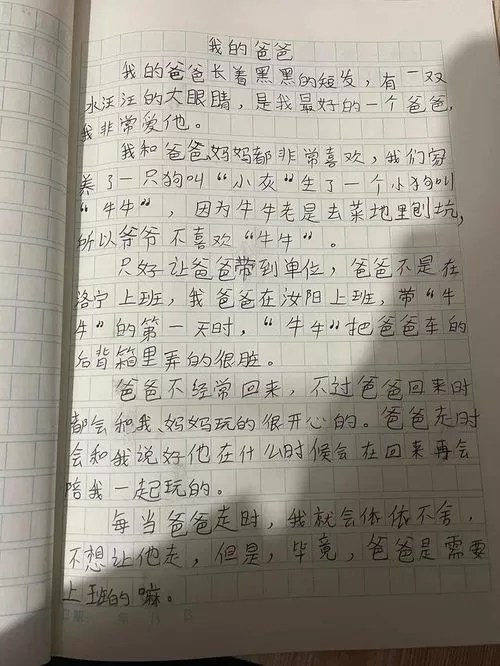 我的爸爸
我的爸爸长着黑黑的短发，有一双
水汪汪的大眼睛，是我最好的一个爸爸，
我非常爱他。
我和爸爸妈妈都非常喜欢，我们家
养了一只狗叫“小灰”生了一个小狗叫
“牛牛”，因为牛牛老是去菜地里刨坑，
所以爷爷不喜欢“牛牛”。
只好让爸爸带到单位，爸爸不是在
洛宁上班，我爸爸在汝阳上班，带“牛
牛”的第一天时，“牛牛”把爸爸车的
后背箱里弄的很脏。
爸爸不经常回来，不过爸爸回来时
都会和我、妈妈玩的很开心的。爸爸走时
会和我说好他在什么时候会在回来再会
陪我一起玩的。
每当爸爸走时，我就会依依不舍，
不想让他走，但是，毕竟，爸爸是需要
上班的嘛。
日期： 年 月 日